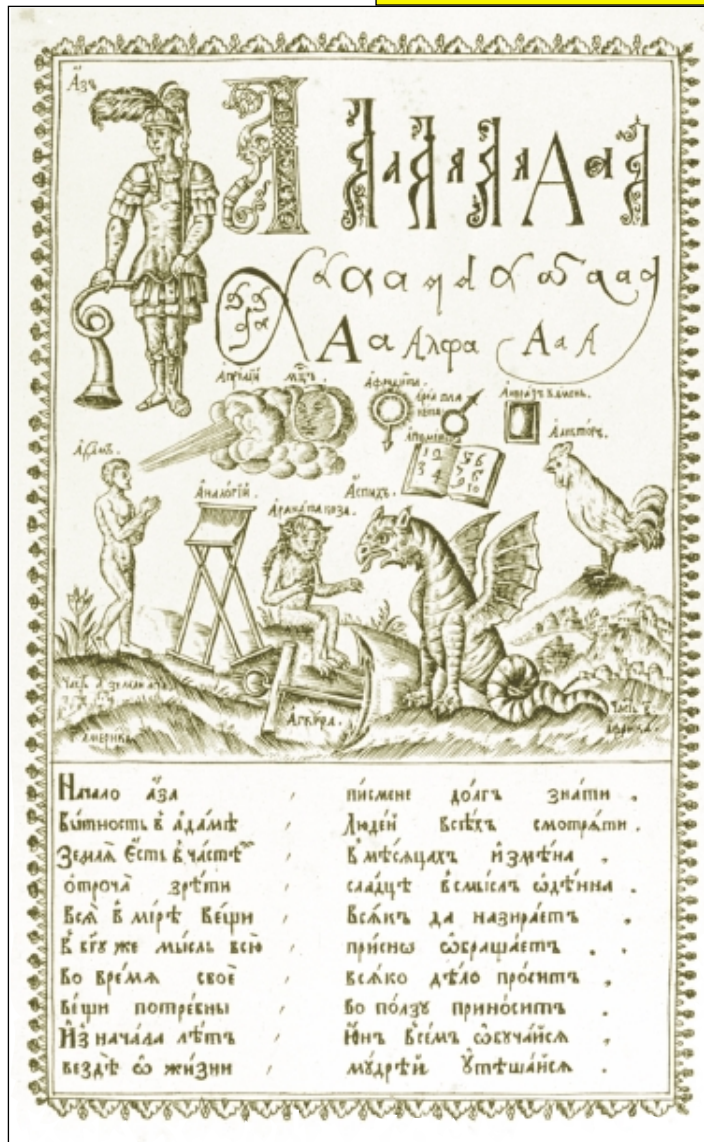 А҆́зъ
А а А а Я я А Ѳ а
а а а а а а а а а
А а Алфа А а А
А҆прі́лїй мц҃ъ.
А҆фроди́та.
А҆́рїа пла
нета
А҆мѳра́зъ ка́мень.
А҆ле́кторъ.
1 2 3 4 5 6 7 8 9 10
А҆да́мъ.
А҆нало́гїй.
А҆́спидъ.
А҆́гкѵра.
Часть а҃ земли
Америка
Часть
Африка
Начало а҆́за , пи́смене до́лгъ зна́ти .
Бы́тность в̾ а҆да́мѣ , Люде́й всѣ́хъ смотрѧ́ти .
Землѧ̀ Є҆́сть в̾ ча́стѣхъ , в̾ мѣ́сѧцахъ и҆змѣ́на ,
о҆троча̀ зрѣ́ти , сла́дцѣ в̾ смы́слъ ѡ҆дѣ́нна .
Всѧ̑ в̾ мі́рѣ ве́щи , всѧ́къ да назира́етъ ,
в̾ бг҃у же мы́сль всю̀ , при́снѡ ѡ҆браща́етъ .
Во вре́мѧ своѐ , всѧ́ко дѣ́ло про́ситъ ,
ве́щи потре́бны , во по́лзу прино́ситъ .
И҆з̾ нача́ла лѣ́тъ , ю҆́нъ всѣ́мъ ѡ҆буча́йсѧ ,
вездѣ̀ ѡ҆ жи́зни , му́дрѣй ᲂу҆тѣша́йсѧ .